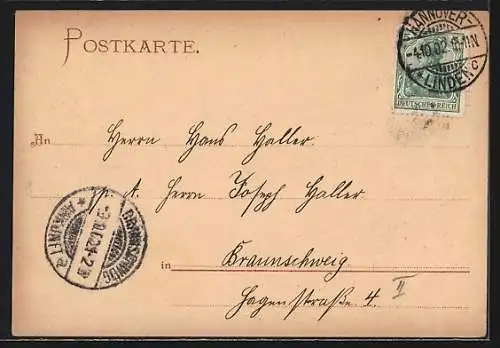 POSTKARTE.
HANNOVER-
-4.10.02.
* LINDEN c
DEUTSCHES REICH
An Herrn Hans Haller
p. A. Herrn Joseph Haller
BRAUNSCHWEIG
in Braunschweig
Hagenstraße 4. II